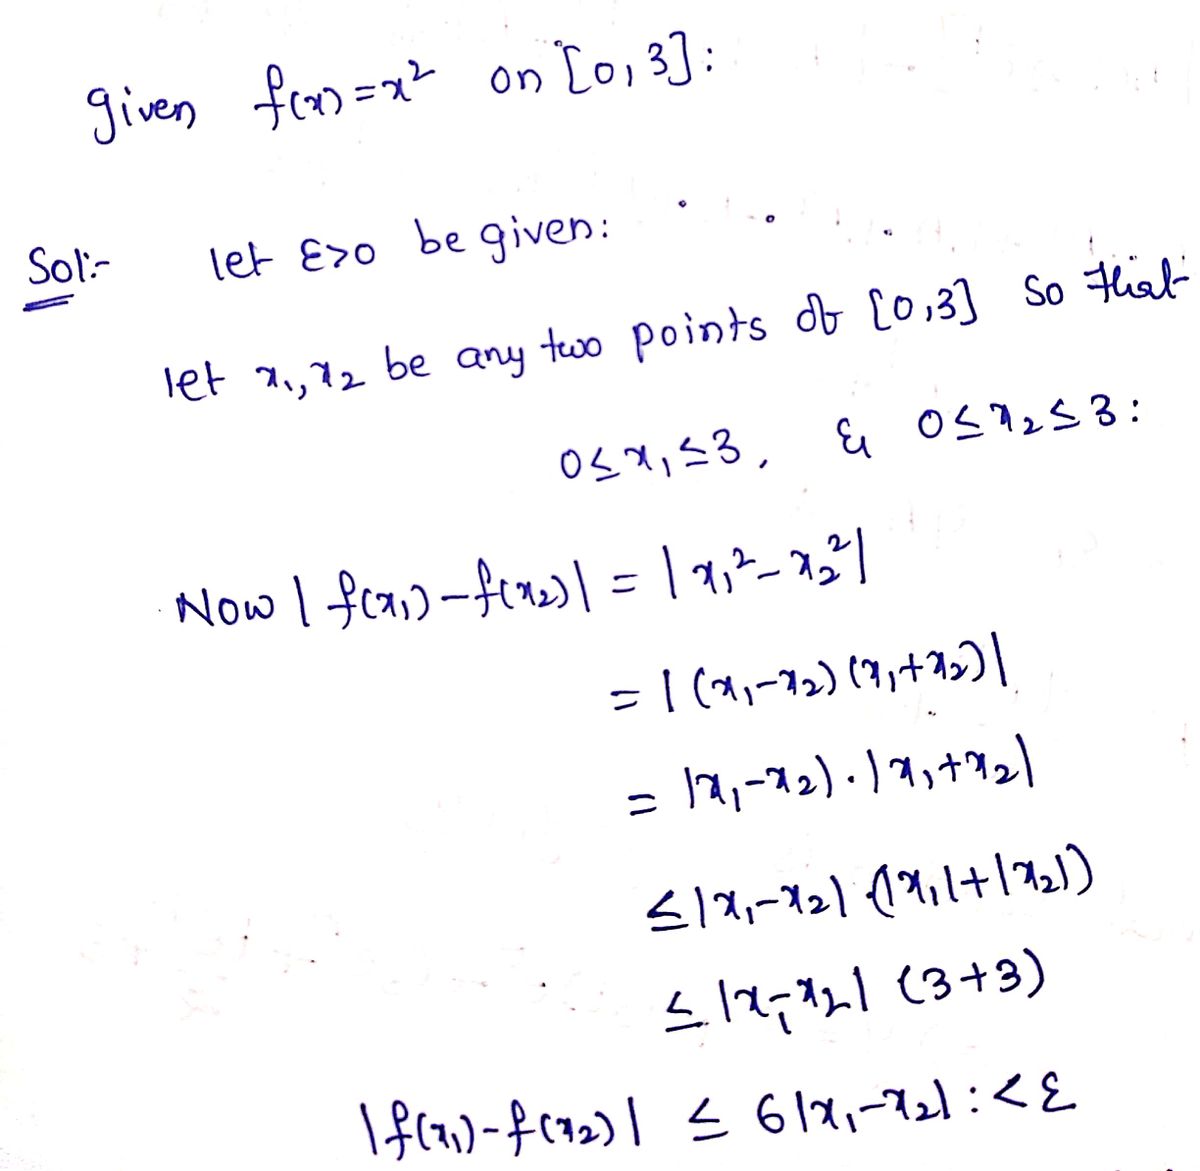 given f(x)=x² on [0,3]:
Sol:- let ε>0 be given:
let x₁,x₂ be any two points of [0,3] so that
0≤x₁≤3, & 0≤x₂≤3:
Now |f(x₁)-f(x₂)| = |x₁²-x₂²|
= |(x₁-x₂)(x₁+x₂)|
= |x₁-x₂|.|x₁+x₂|
≤|x₁-x₂| (|x₁|+|x₂|)
≤ |x₁-x₂| (3+3)
|f(x₁)-f(x₂)| ≤ 6|x₁-x₂| :<ε